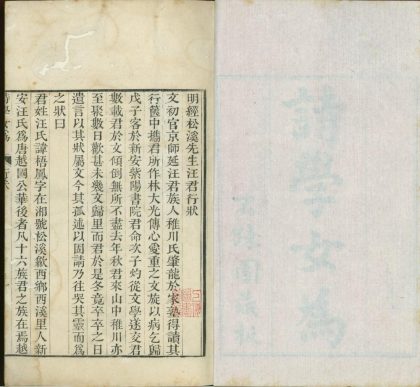 明經松溪先生汪君行狀
文初官京師延汪君族人稚川氏肇龍於家塾得讀其
行篋中攜君所作林大光傳心愛重之文旋以病乞歸
戊子客於新安紫陽書院君命次子灼從文學遂交君
數載君於文傾倒無所不盡去年秋君來山中稚川亦
至聚數日歡甚未幾文歸里而君於是冬竟卒卒之日
遺言以其狀屬文今其孤述以固請乃往哭其靈而爲
之狀曰
君姓汪氏諱梧鳳字在湘號松溪歙西鄉西溪里人新
安汪氏爲唐越國公華後者凡十六族君之族在焉越
詩學女爲